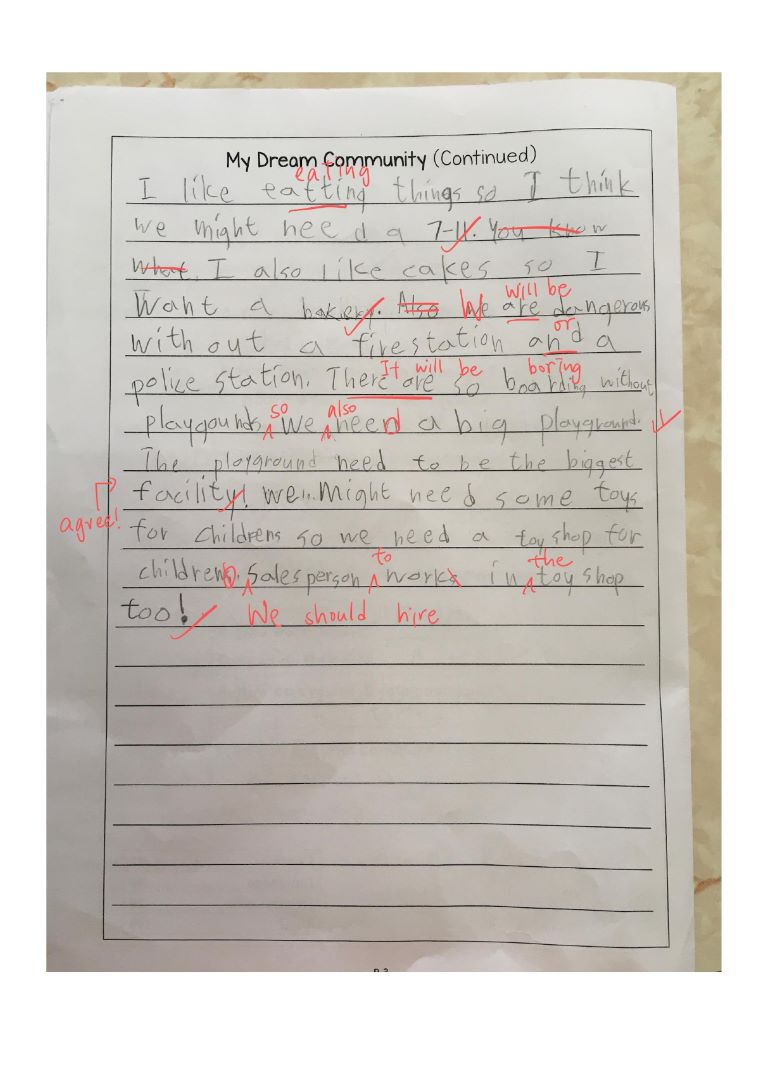 My Dream Community (Continued)
eating
I like eatting things so I think
we might need a 7-11. You know
what. I also like cakes so I
will be
Want a bakery. Also We are dangerous
or
without a firestation and a
It will be boring
police station. There are so boarding without
so also
playgounds we need a big playground.
The playground need to be the biggest
facility! we... Might need some toys
agree!
for childrens so we need a toy shop for
to the
childrens. Salesperson works in toy shop
too! We should hire